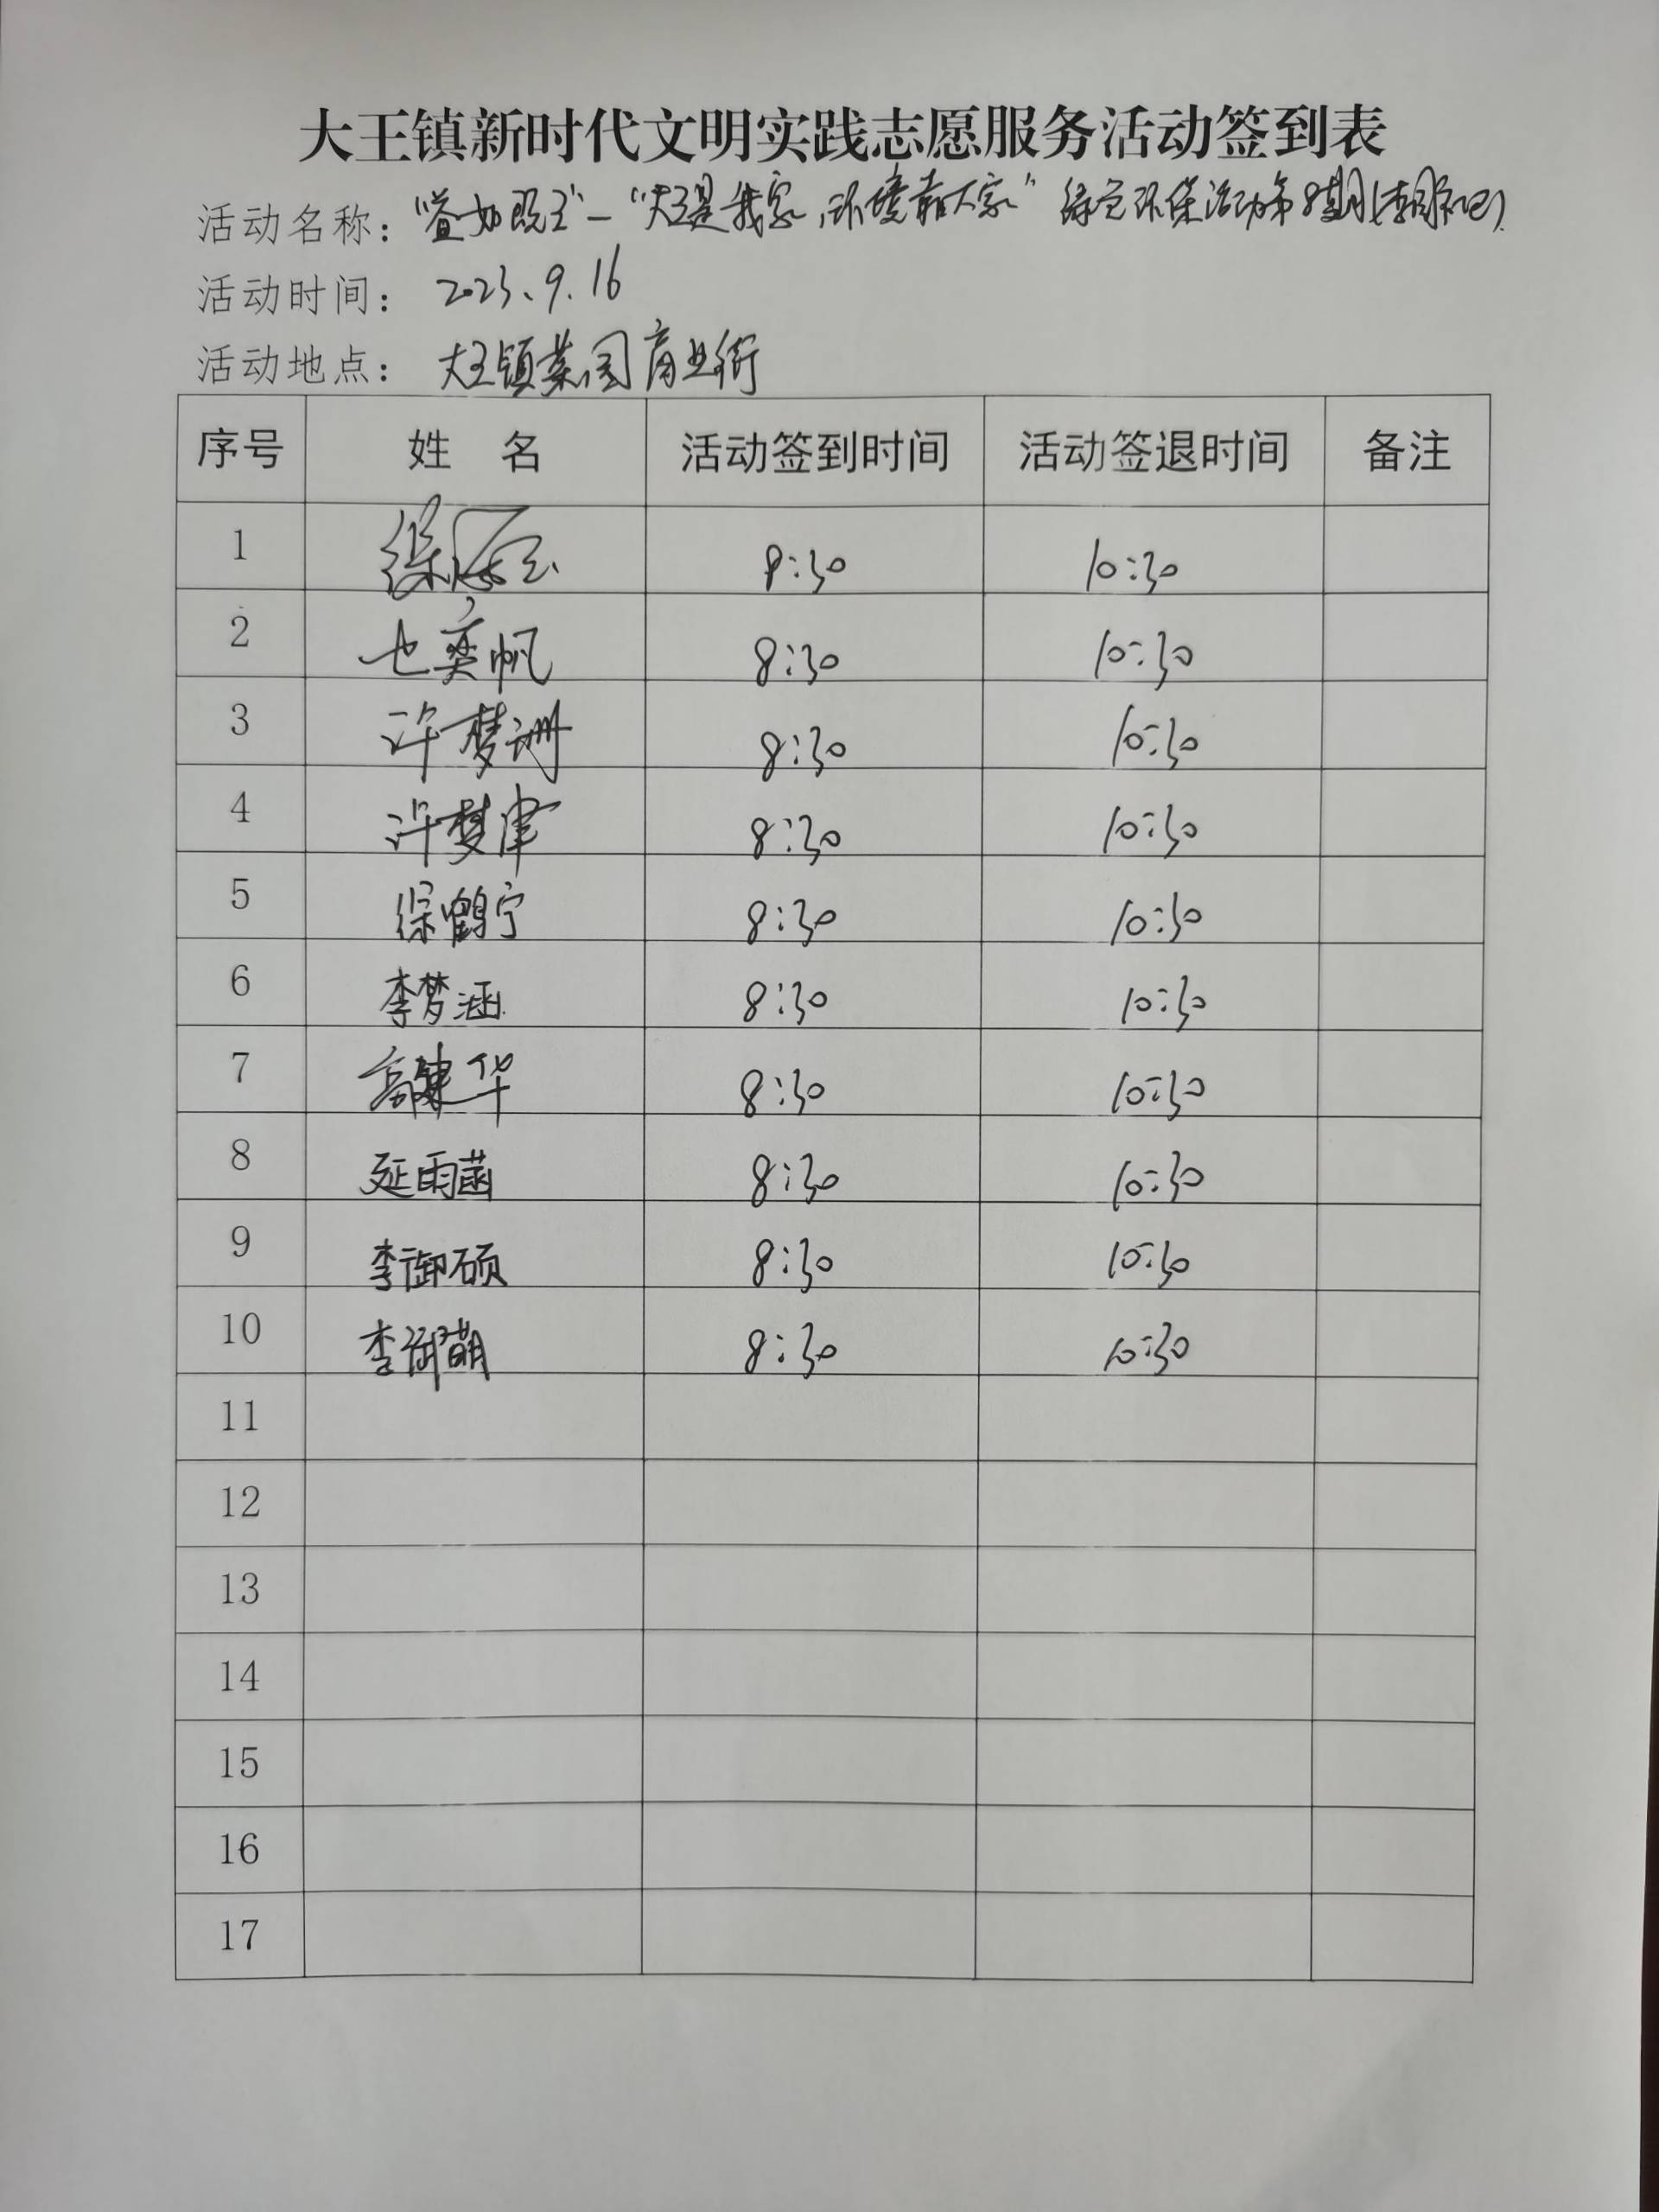 大王镇新时代文明实践志愿服务活动签到表
活动名称："益如既王"—"大王是我家，环境靠大家"绿色环保活动第8期
活动时间：2023.9.16
活动地点：大王镇菜园商业街
序号 姓 名 活动签到时间 活动签退时间 备注
1 8:30 10:30
2 奕帆 8:30 10:30
3 许梦洲 8:30 10:30
4 许梦津 8:30 10:30
5 徐鹤宁 8:30 10:30
6 李梦涵 8:30 10:30
7 高建华 8:30 10:30
8 延雨菡 8:30 10:30
9 李御硕 8:30 10:30
10 李御萌 8:30 10:30
11
12
13
14
15
16
17